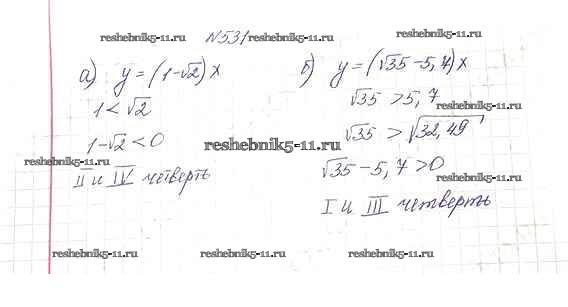 reshebnik5-11.ru
N531
reshebnik5-11.ru
reshebnik5-11.ru
а) y=(1-√2)x
1<√2
1-√2<0
reshebnik5-11.ru
II и IV четверть
б) y=(√35-5,7)x
√35>5,7
√35>√32,49
reshebnik5-11.ru
√35-5,7>0
reshebnik5-11.ru
I и III четверть
reshebnik5-11.ru
reshebnik5-11.ru
reshebnik5-11.ru